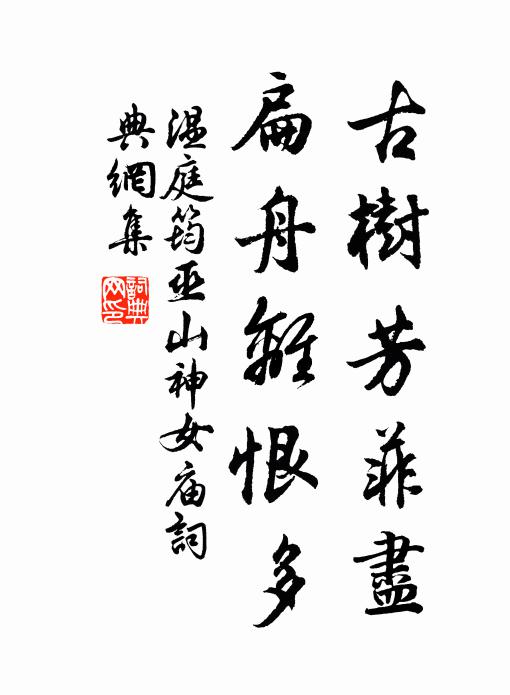 古樹芳菲盡
扁舟離恨多
温庭筠巫山神女庙詞
典網集
詞典網印